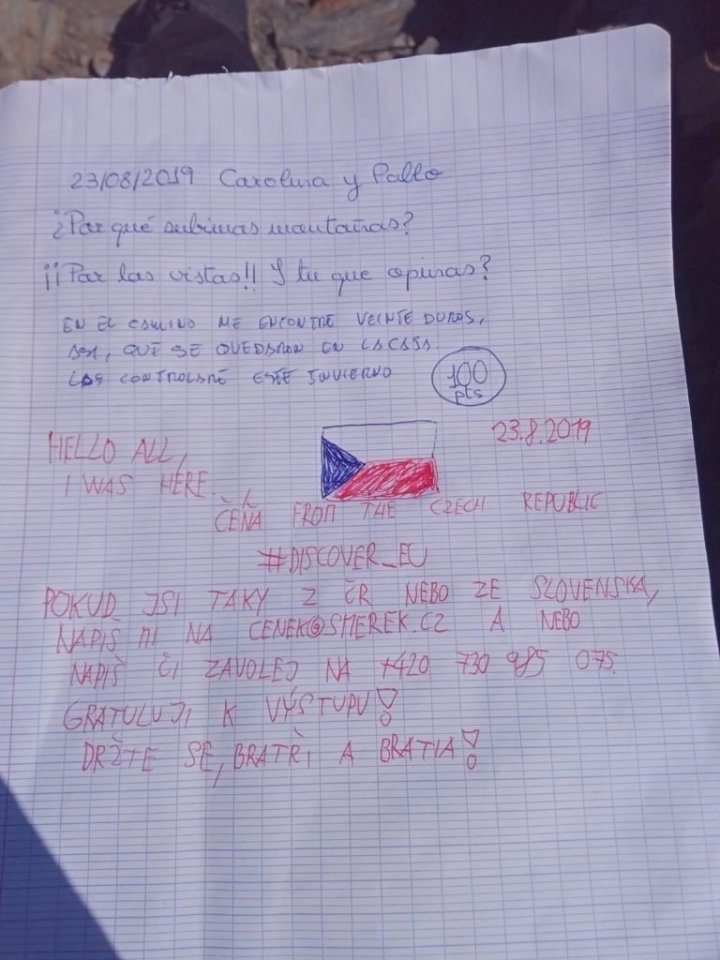 23/08/2019 Carolina y Pablo
¿Por qué subimos montañas?
¡¡Por las vistas!! Y tu que opinas?
EN EL CAMINO ME ENCONTRÉ VEINTE DUROS,
QUE SE QUEDARON EN LA CASA.
LOS CONTROLARÉ ESTE INVIERNO
100
pts
23.8.2019
HELLO ALL,
I WAS HERE.
ČENA FROM THE CZECH REPUBLIC
#DISCOVER_EU
POKUD JSI TAKY Z ČR NEBO ZE SLOVENSKA,
NAPIŠ MI NA CENEK@SMEREK.CZ A NEBO
NAPIŠ ČI ZAVOLEJ NA +420 730 985 075.
GRATULUJI K VÝSTUPU!
DRŽTE SE, BRATŘI A BRATIA!